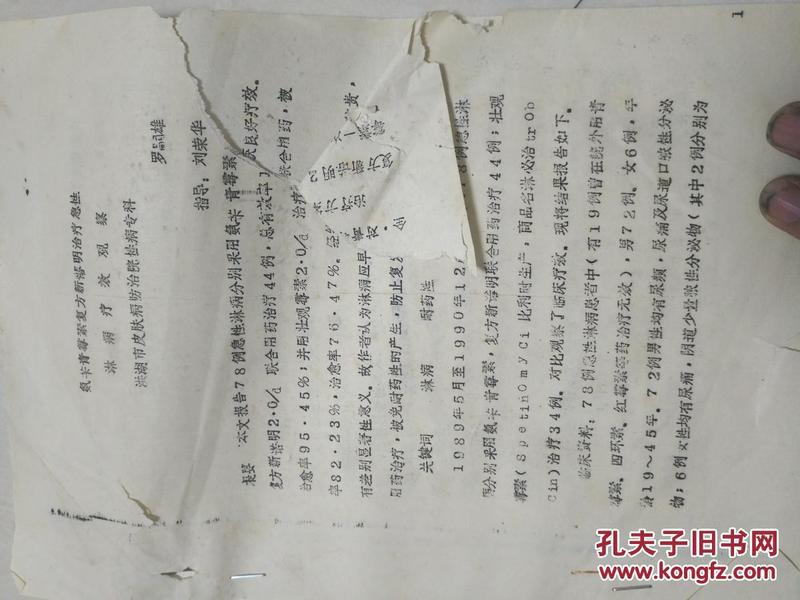 1
氨卡青霉素复方新诺明治疗急性
淋病疗效观察
洪湖市皮肤病防治院性病专科
罗嗣雄
指导：刘荣华
提要 本文报告78例急性淋病分别采用氨卡青霉素
复方新诺明2·0/d 联合用药治疗44例，总有效率 良好疗效。
治愈率95·45%；并用壮观霉素2·0/d 治疗 联合用药，被
率82·23%，治愈率76·47%。
有差别显著性意义。故作者认为淋病应早
用药治疗，避免耐药性的产生，防止复发
关键词 淋病 耐药性
1989年5月至1990年12月 8例急性淋
病分别采用氨卡青霉素，复方新诺明联合用药治疗44例；壮观
霉素（Spetinomyci 比利时生产，商品名淋必治trob
cin）治疗34例。对比观察了临床疗效。现将结果报告如下。
临床资料：78例急性淋病患者中（有19例曾在院外用青
霉素、四环素、红霉素等药治疗无效），男72例、女6例，年
龄19～45年。72例男性均有尿频，尿痛及尿道口脓性分泌
物；6例女性均有尿痛，阴道少量脓性分泌物（其中2例分别为
孔夫子旧书网
www.kongfz.com